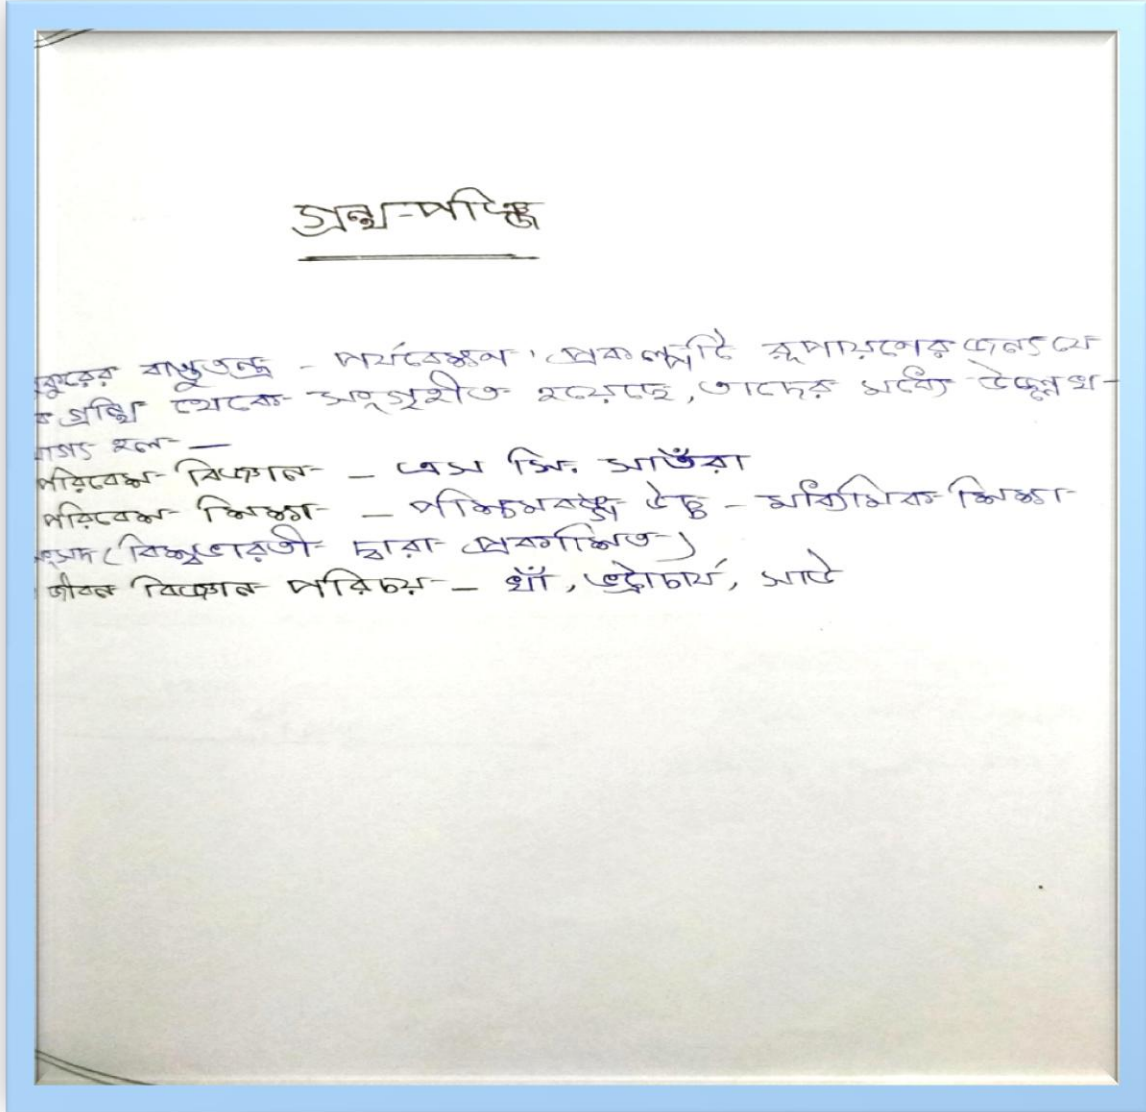 গ্রন্থ-পঞ্জি
কুরের বাস্তুতন্ত্র - পর্যবেক্ষণ' প্রকল্পটি রূপায়ণের জন্য যে
ক গ্রন্থি থেকে সংগৃহীত হয়েছে, তাদের মধ্যে উল্লেখ-
যোগ্য হল- —
পরিবেশ বিজ্ঞান - এস সি. সাঁতরা
পরিবেশ শিক্ষা - পশ্চিমবঙ্গ উচ্চ - মাধ্যমিক শিক্ষা
সংসদ (বিশ্বভারতী দ্বারা প্রকাশিত)
জীবন বিজ্ঞান পরিচয় - খাঁ, ভট্টাচার্য, সাউ